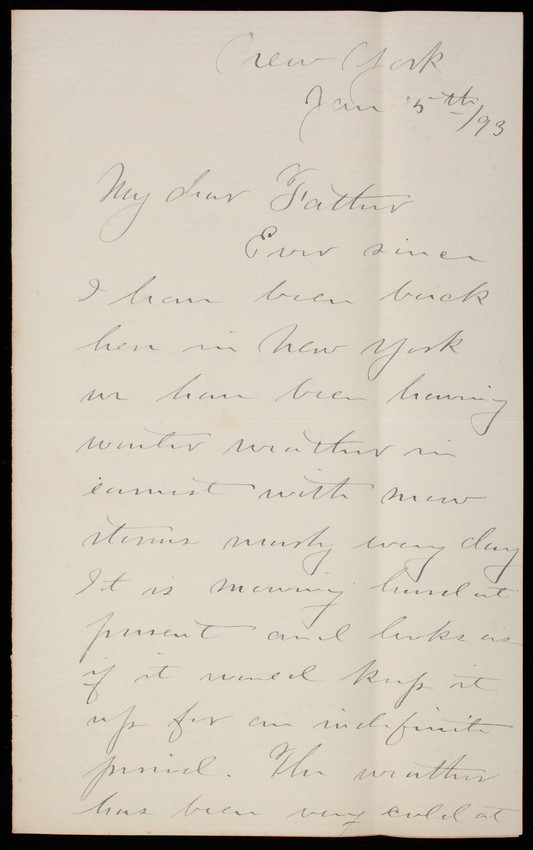 New York
Jan 5th/93
My dear Father
Ever since
I have been back
here in New York
we have been having
winter weather in
earnest with snow
storms nearly every day
It is snowing hard at
present and looks as
if it would keep it
up for an indefinite
period. The weather
has been very cold at